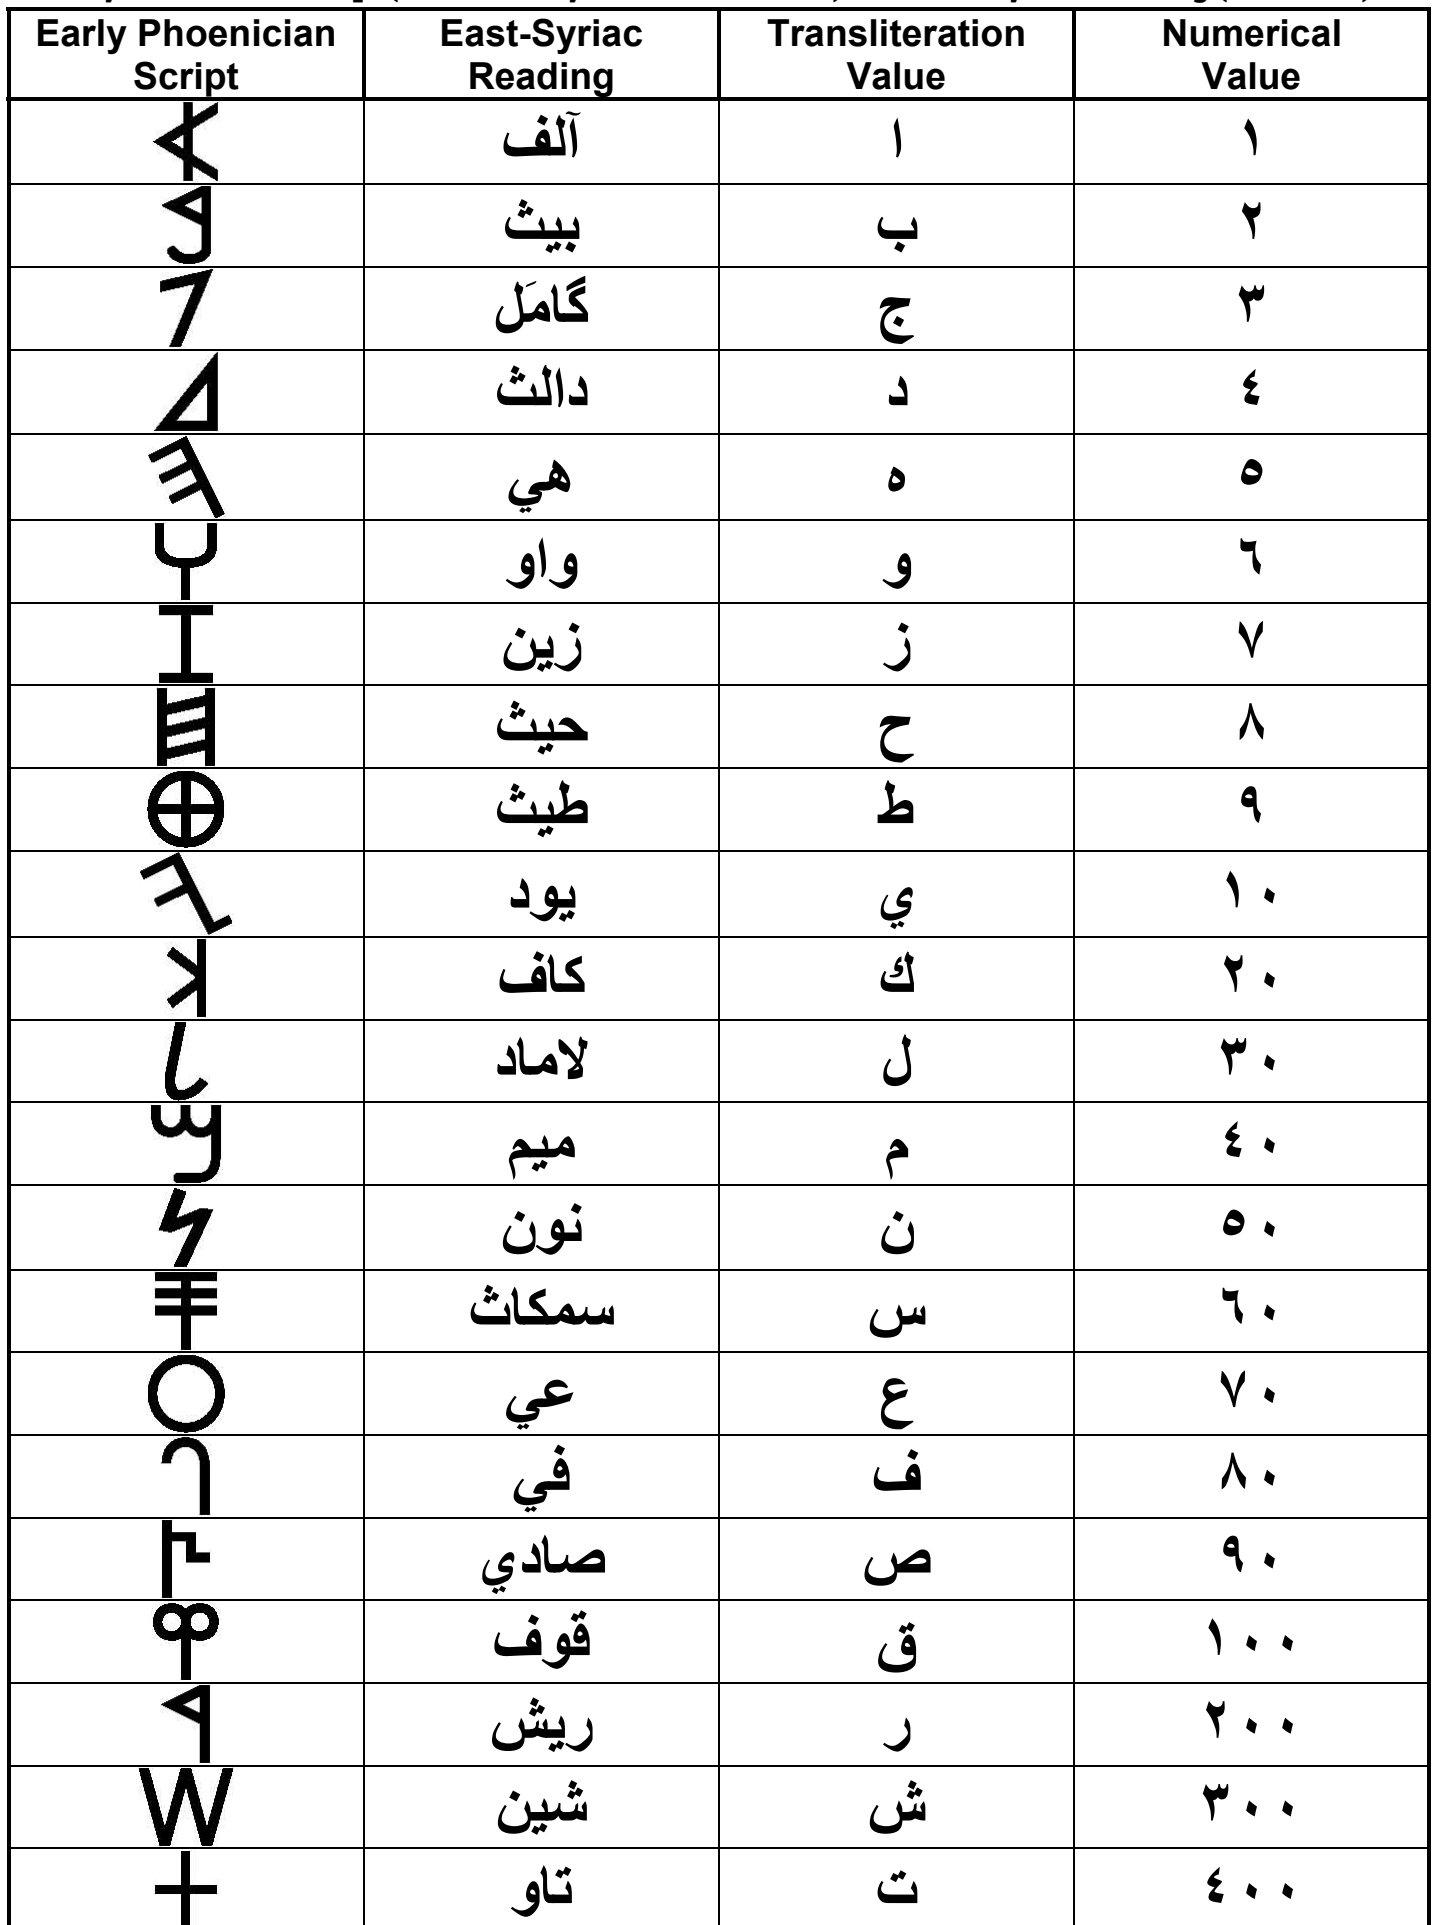 Early Phoenician Script | East-Syriac Reading | Transliteration Value | Numerical Value
𐤀 | آلف | ا | ١
𐤁 | بيث | ب | ٢
𐤂 | گامَل | ج | ٣
𐤃 | دالث | د | ٤
𐤄 | هي | ه | ٥
𐤅 | واو | و | ٦
𐤆 | زين | ز | ٧
𐤇 | حيث | ح | ٨
𐤈 | طيث | ط | ٩
𐤉 | يود | ي | ١٠
𐤊 | كاف | ك | ٢٠
𐤋 | لاماد | ل | ٣٠
𐤌 | ميم | م | ٤٠
𐤍 | نون | ن | ٥٠
𐤎 | سمكاث | س | ٦٠
𐤏 | عي | ع | ٧٠
𐤐 | في | ف | ٨٠
𐤑 | صادي | ص | ٩٠
𐤒 | قوف | ق | ١٠٠
𐤓 | ريش | ر | ٢٠٠
𐤔 | شين | ش | ٣٠٠
𐤕 | تاو | ت | ٤٠٠